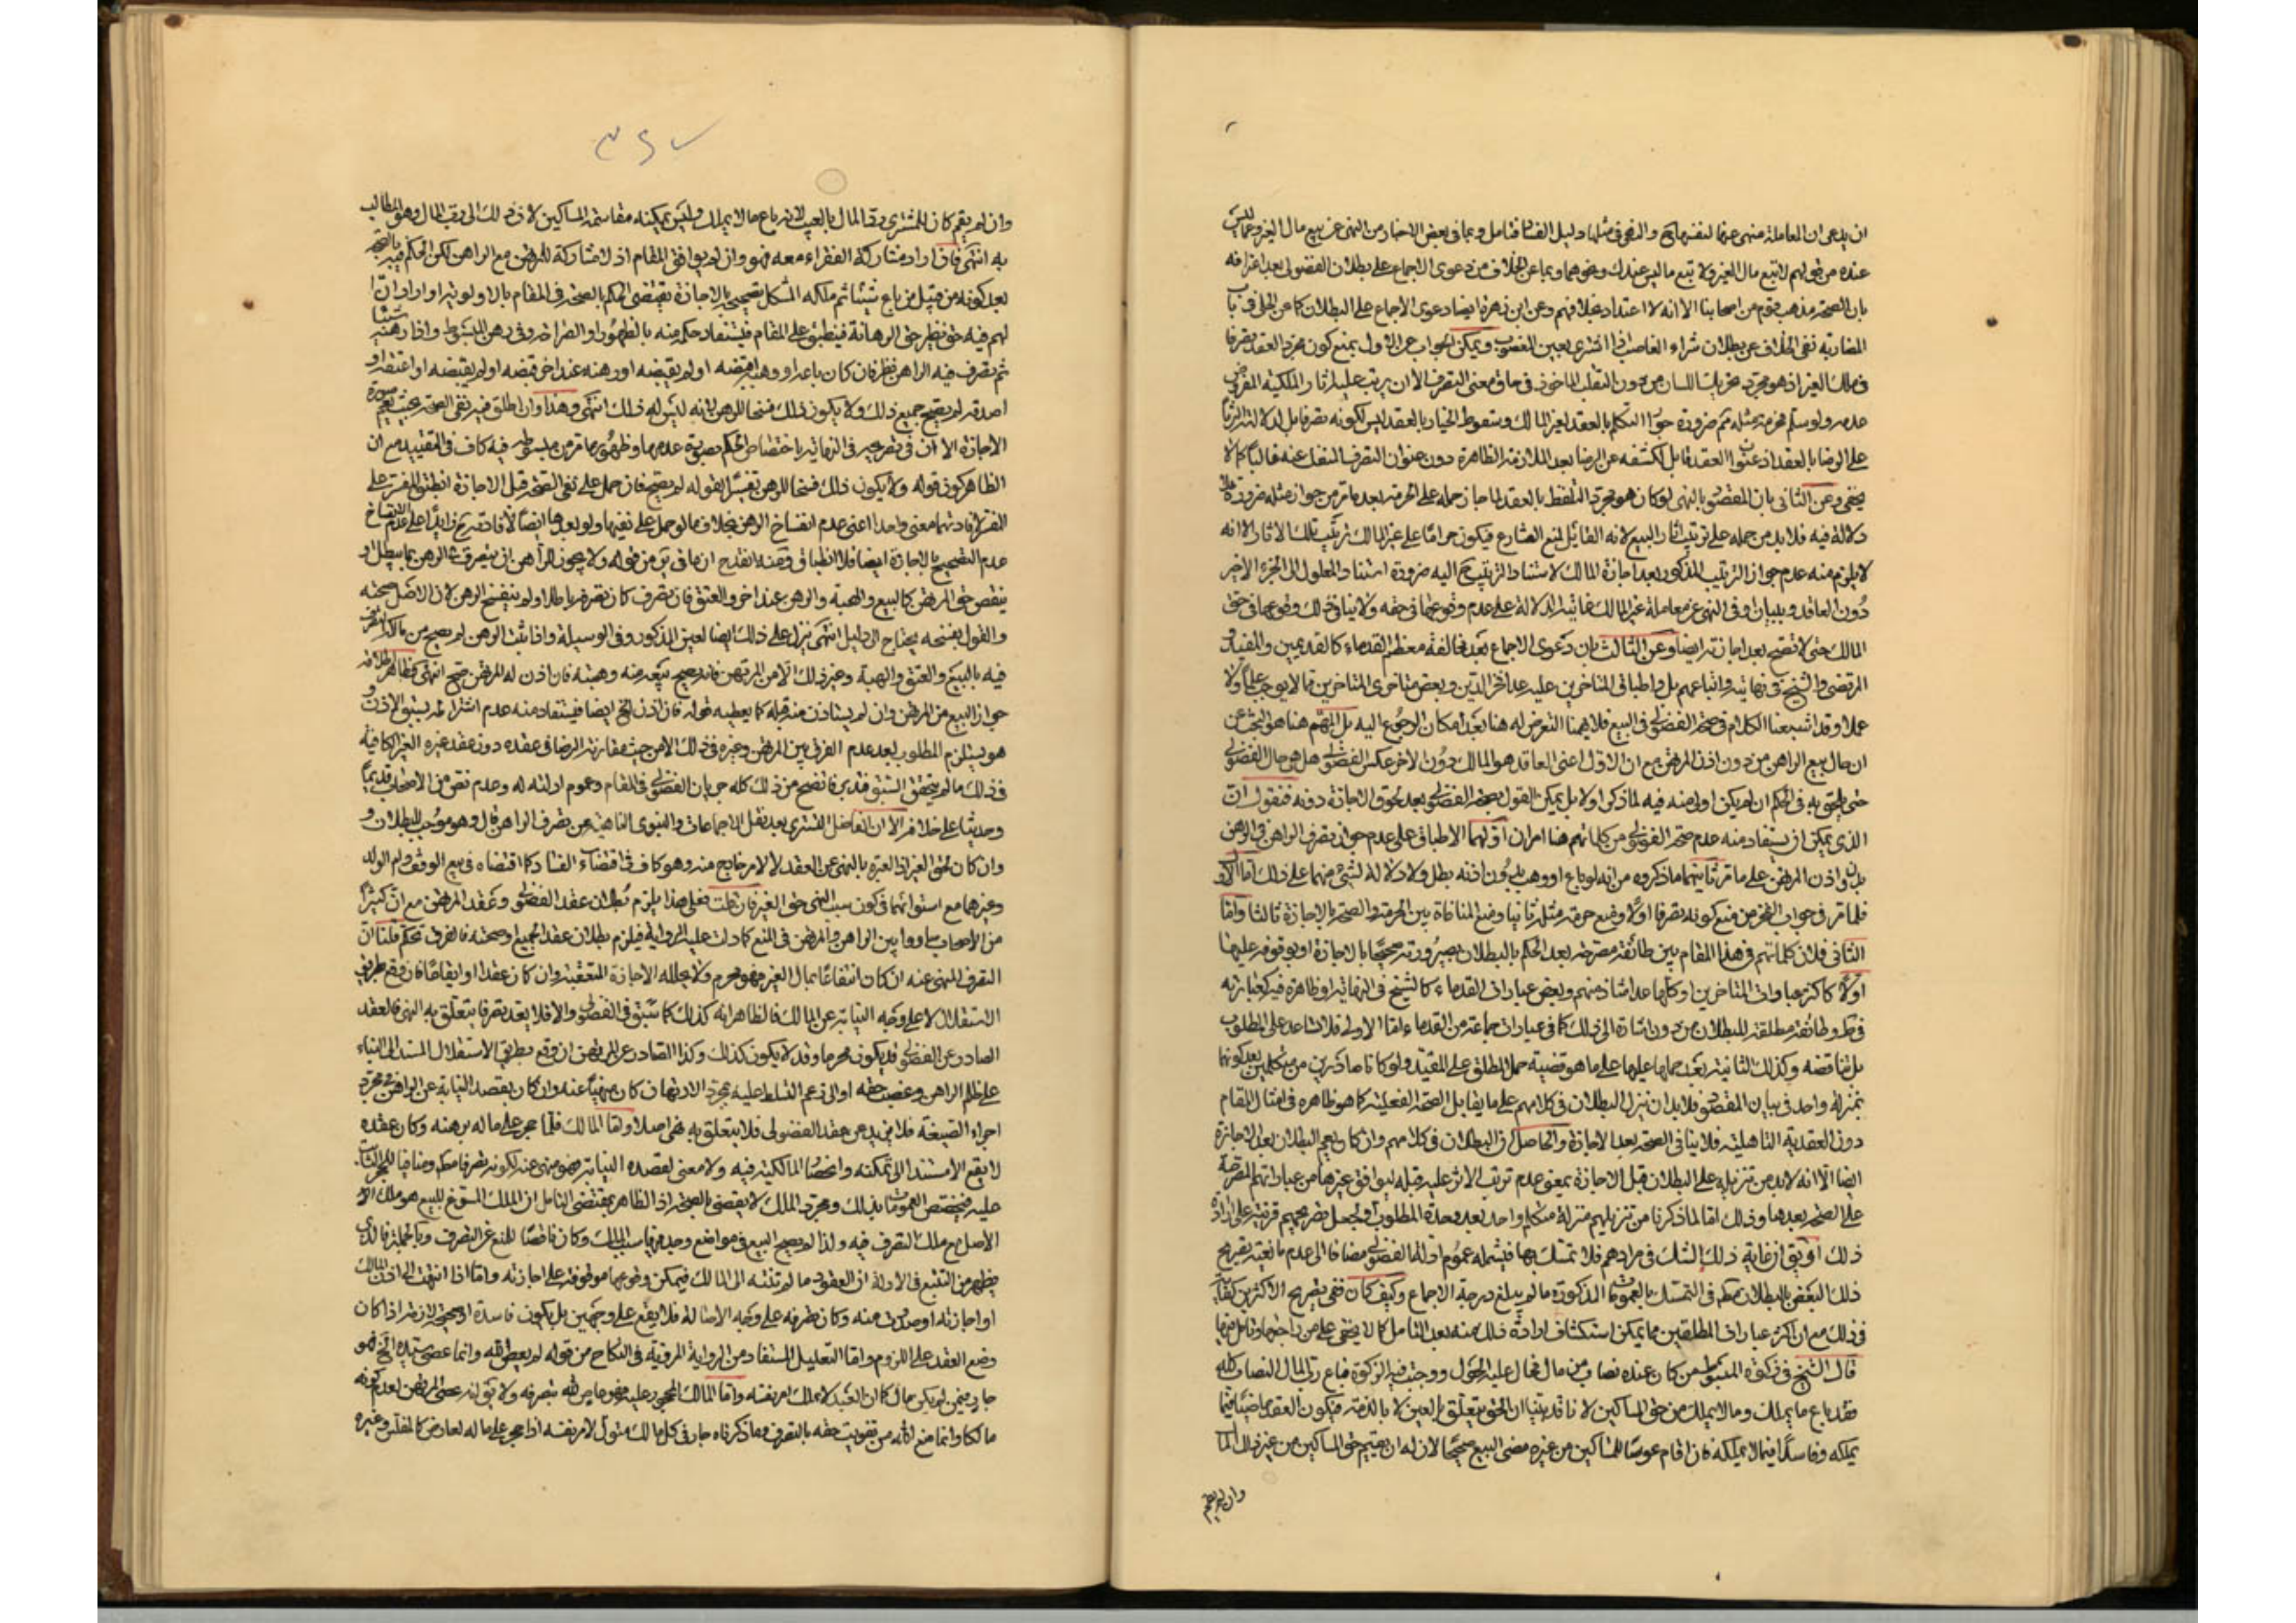 ان يدعى ان المعاملة منهى عنها لنفسها والنهى فى مثلها دليل الفساد فتامل وبما فى بعض الاخبار من النهى عن بيع مال الغير وعما ليس
عنده من قولهم لا تبع مال الغير ولا تبع ما ليس عندك ونحوهما وبما عن الخلاف من دعوى الاجماع على بطلان الفضولى بعد اعترافه
بان الصحة مذهب قوم من اصحابنا الا انه لا اعتداد بخلافهم وعن ابن زهرة ايضا دعوى الاجماع على البطلان كما عن الحلى فى باب
المضاربة نفى الخلاف عن بطلان شراء الغاصب اذا اشترى بعين المغصوب ويمكن الجواب عن الاول بمنع كون مجرد العقد تصرفا
فى ملك الغير اذ هو مجرد تحريك اللسان من دون التقلب الماخوذ فى حاق معنى التصرف الا ان يرتب عليه اثار الملكية المفروض
عدمه ولو سلم فحرمة مثله ضرورة جواز التكلم بالعقد لغير المالك وسقوط الخيار بالعقد ليس لكونه تصرفا بل لدلالته التزاما
على الرضا بالعقد اذ عنوان العقد قابل لكشفه عن الرضا بعد الملازمة الظاهرة دون عنوان التصرف المنفك عنه غالبا كما لا
يخفى وعن الثانى بان المقصود بالنهى لو كان هو مجرد التلفظ بالعقد لما جاز حمله على الحرمة بعد ما مر من جواز مثله ضرورة فلا
دلالة فيه فلا بد من حمله على ترتيب اثار البيع لانه القابل لمنع الشارع فيكون حراما على غير المالك ترتيب تلك الاثار الا انه
لا يلزم منه عدم جواز الترتيب المذكور بعد اجازة المالك لاستناد الترتيب ح اليه ضرورة استناد المعلول الى الجزء الاخير
دون العاقد وببيان اوفى النهى عن معاملة غير المالك غايته الدلالة على عدم وقوعها فى حقه ولا ينافى ذلك وقوعها فى حق
المالك حتى لا تصح بعد اجازته ايضا وعن الثالث بان دعوى الاجماع بعد مخالفة معظم القدماء كالقديمين والمفيد و
المرتضى والشيخ فى نهايته واتباعهم بل واطباق المتاخرين عليه عدا فخر الدين وبعض متاخرى المتاخرين مما لا يوجب علما ولا
عملا وقد اشبعنا الكلام فى صحة الفضولى فى البيع فلا يهمنا التعرض له هنا بعد امكان الرجوع اليه بل المهم هنا هو البحث عن
ان حال بيع الراهن من دون اذن المرتهن مع ان الاول اعنى العاقد هو المالك دون الاخر عكس الفضولى هل هو حال الفضولى
حتى يلحق به فى الحكم ان لم يكن اولى منه فيه لما ذكر اولا بل يمكن القول بصحة الفضولى بعد لحوق الاجازة دونه فنقول ان
الذى يمكن ان يستفاد منه عدم صحة الفضولى من كلماتهم هنا امران اولهما الاطباق على عدم جواز تصرف الراهن فى الرهن
بدون اذن المرتهن على ما مر ثانيهما ما ذكروه من انه لو باع او وهب بدون اذنه بطل ولا دلالة لشئ منهما على ذلك اما الاول
فلما مر فى جواب الفخر من منع كونه تصرفا اولا ومنع حرمة مثله ثانيا ومنع المنافاة بين الحرمة والصحة بالاجازة ثالثا واما
الثانى فلان كلماتهم فى هذا المقام بين طائفة مصرحة بعد الحكم بالبطلان بصيرورته صحيحا بالاجازة او بوقوفه عليها
اولا كاكثر عبارات المتاخرين او كلها عدا شاذ منهم وبعض عبارات القدماء كالشيخ فى النهاية او ظاهرة فيه كعبارته
فى ط وطائفة مطلقة للبطلان من دون اشارة الى ذلك كما فى عبارات جماعة من القدماء اما الاولى فلا تساعد على المطلوب
بل تناقضه وكذلك الثانية بعد حملها عليها على ما هو قضية حمل المطلق على المقيد ولو كانا صادرين من متكلمين بعد كونهما
بمنزلة واحد فى بيان المقصود فلا بد ان ننزل البطلان فى كلامهم على ما يقابل الصحة الفعلية كما هو ظاهره فى امثال المقام
دون العقدية التاهلية فلا ينافى الصحة بعد الاجازة والحاصل ان البطلان فى كلامهم وان كان يعم البطلان بعد الاجازة
ايضا الا انه لا بد من تنزيله على البطلان قبل الاجازة بمعنى عدم ترتب الاثر عليه قبله ليوافق غيرها من عباراتهم المصرحة
على الصحة بعدها وذلك اما لما ذكرنا من تنزيلهم منزلة متكلم واحد بعد وحدة المطلوب او لجعل تصريحهم قرينة على ارادة
ذلك او يق ان غاية ذلك الشك فى مرادهم فلا تمسك بها فيشمله عموم ادلة الفضولى مضافا الى عدم مانعية تصريح
ذلك البعض بالبطلان مط فى التمسك بالعمومات المذكورة ما لم يبلغ درجة الاجماع وكيف كان ففى تصريح الاكثرين كفاية
فى ذلك مع ان اكثر عبارات المطلقين مما يمكن استكشاف ارادة ذلك منه بعد التامل كما لا يخفى على من راجعها وتامل فيها
قال الشيخ فى زكوة المبسوط من كان عنده نصاب من مال فحال عليه الحول ووجبت فيه الزكوة فباع رب المال النصاب كله
فقد باع ما يملك وما لا يملك من حق المساكين لانا قد بينا ان الحق يتعلق بالعين لا بالذمة فيكون العقد ماضيا فيما
يملكه وفاسدا فيما لا يملكه فان اقام عوضا للمساكين من غيره مضى البيع صحيحا لان له ان يقيم حق المساكين من غير ذلك المال
وان لم يقم
٣٤٧
وان لم يقم كان للمشترى رد المال بالعيب لانه باع ما لا يملك وليس يمكنه مقاسمة المساكين لان ذلك الى رب المال وهو المطالب
به انتهى فان اراد مشاركة الفقراء معه فهو وان لم يوافق المقام اذ لا مشاركة للمرتهن مع الراهن لكن الحكم فيه بالصحة
بعد كونه من قبيل من باع شيئا ثم ملكه المشكل تصحيحه بالاجازة يقتضى الحكم بالصحة فى المقام بالاولوية او اراد ان
لهم فيه حق نظير حق الرهانة فينطبق على المقام فيستفاد حكمه منه بالظهور او الصراحة وفى رهن المبسوط واذا رهنه شيئا
ثم تصرف فيه الراهن نظر فان كان باعه او وهبه اقبضه او لم يقبضه او رهنه عند اخر قبضه او لم يقبضه او اعتقه او
اصدقه لم يصح جميع ذلك ولا يكون ذلك فسخا للرهن لانه ليس له ذلك انتهى وهذا وان اطلق فيه نفى الصحة بحيث يعم صورة
الاجازة الا ان فى تصريحه فى النهاية باختصاص الحكم بصورة عدمها وظهور ما مر من مبسوطه فيه كاف فى التقييد مع ان
الظاهر كون قوله ولا يكون ذلك فسخا للرهن تفسيرا لقوله لم يصح فان حمل على نفى الصحة قبل الاجازة انطبق المفسر على
المفسر لافادتهما معنى واحدا اعنى عدم انفساخ الرهن بخلاف ما لو حمل على نفيها ولو بعدها ايضا لافادته ح زائدا على عدم الانفساخ
عدم التصحيح بالاجازة ايضا فلا انطباق ومنه انقدح ان ما فى من قوله ولا يجوز للراهن ان يتصرف فى الرهن بما يبطل او
ينقص حق المرتهن كالبيع والهبة والرهن عند اخر والعتق فان تصرف كان تصرفه باطلا ولم ينفسخ الرهن لان الاصل صحته
والقول بفسخه يحتاج الى دليل انتهى ينزل على ذلك ايضا لعين المذكور وفى الوسيلة واذا ثبت الرهن لم يصح من مالكه التصرف
فيه بالبيع والعتق والهبة وغير ذلك الا من المرتهن فانه يصح بيعه منه وهبته فان اذن له المرتهن صح انتهى فظاهر اطلاقه
جواز البيع من المرتهن وان لم يستاذن منه قبله كما يعطيه قوله فان اذن الخ ايضا فيستفاد منه عدم اشتراطه بسبق الاذن و
هو يستلزم المطلوب بعد عدم الفرق بين المرتهن وغيره فى ذلك الا من حيث مقارنة الرضا فى عقده دون عقد غيره الغير الكافية
فى ذلك ما لم يتحقق السبق فتدبر فاتضح من ذلك كله جريان الفضولى فى المقام وعموم ادلته له وعدم نص من الاصحاب قديما
وحديثا على خلافه الا ان الفاضل التسترى بعد نقل الاجماعات والنبوى الناهية عن تصرف الراهن قال وهو موجب للبطلان و
وان كان لحق الغير اذ العبرة بالنهى عن العقد لا لامر خارج منه وهو كاف فى اقتضاء الفساد كما اقتضاه فى بيع الوقف وام الولد
وغيرهما مع استوائهما فى كون سبب النهى حق الغير فان قلت فعلى هذا يلزم بطلان عقد الفضولى وعقد المرتهن مع ان كثيرا
من الاصحاب ساووا بين الراهن والمرتهن فى المنع كما دلت عليه الرواية فيلزم بطلان عقد الجميع او صحته فالفرق تحكم قلنا ان
التصرف المنهى عنه ان كان انتفاعا بمال الغير فهو محرم ولا يحلله الاجازة المتعقبة وان كان عقدا او ايقاعا فان وقع بطريق
الاستقلال لا على وجه النيابة عن المالك فالظاهر انه كذلك كما سبق فى الفضولى والا فلا يعد تصرفا يتعلق به النهى فالعقد
الصادر عن الفضولى قد يكون محرما وقد لا يكون كذلك وكذا الصادر عن المرتهن ان وقع بطريق الاستقلال المستند الى البناء
على ظلم الراهن وغصب حقه او الى زعم التسلط عليه بمجرد الارتهان كان منهيا عنه وان كان بقصد النيابة عن الراهن فى مجرد
اجراء الصيغة فلا يزيد عن عقد الفضولى فلا يتعلق به نهى اصلا واما المالك فلما حجر على ماله برهنه وكان عقده
لا يقع الا مستندا الى تملكه وانحصار المالكية فيه ولا معنى لقصده النيابة فهو منهى عنه لكونه تصرفا مط ومنافيا للحجر الثابت
عليه فيختص العمومات بذلك ومجرد الملك لا يقضى بالصحة اذ الظاهر بمقتضى التامل ان الملك المسوغ للبيع هو ملك الا
الاصل مع ملك التصرف فيه ولذا لم يصح البيع فى مواضع وجد فيها سبب الملك وكان ناقصا للمنع عن التصرف وبالجملة فالذى
يظهر من التتبع فى الادلة ان العقود ما لم تنته الى المالك فيمكن وقوعها موقوفة على اجازته واما اذا انتهت الى اذن المالك
او اجازته او صدرت منه وكان تصرفه على وجه الاصالة فلا يقع على وجهين بل يكون فاسدة او صحيحة لازمة اذا كان
وضع العقد على اللزوم واما التعليل المستفاد من الرواية المروية فى النكاح من قوله لم يعص الله وانما عصى سيده الخ فهو
جار فيمن لم يكن مالكا كما ان العبد لا يملك امر نفسه واما المالك المحجور عليه فهو عاص لله بتصرفه ولا يق انه عصى المرتهن لعدم كونه
مالكا وانما منع الله من تفويت حقه بالتصرف وما ذكرناه جار فى كل مالك متول لامر نفسه اذا حجر على ماله لعارض كالمفلس وغيره